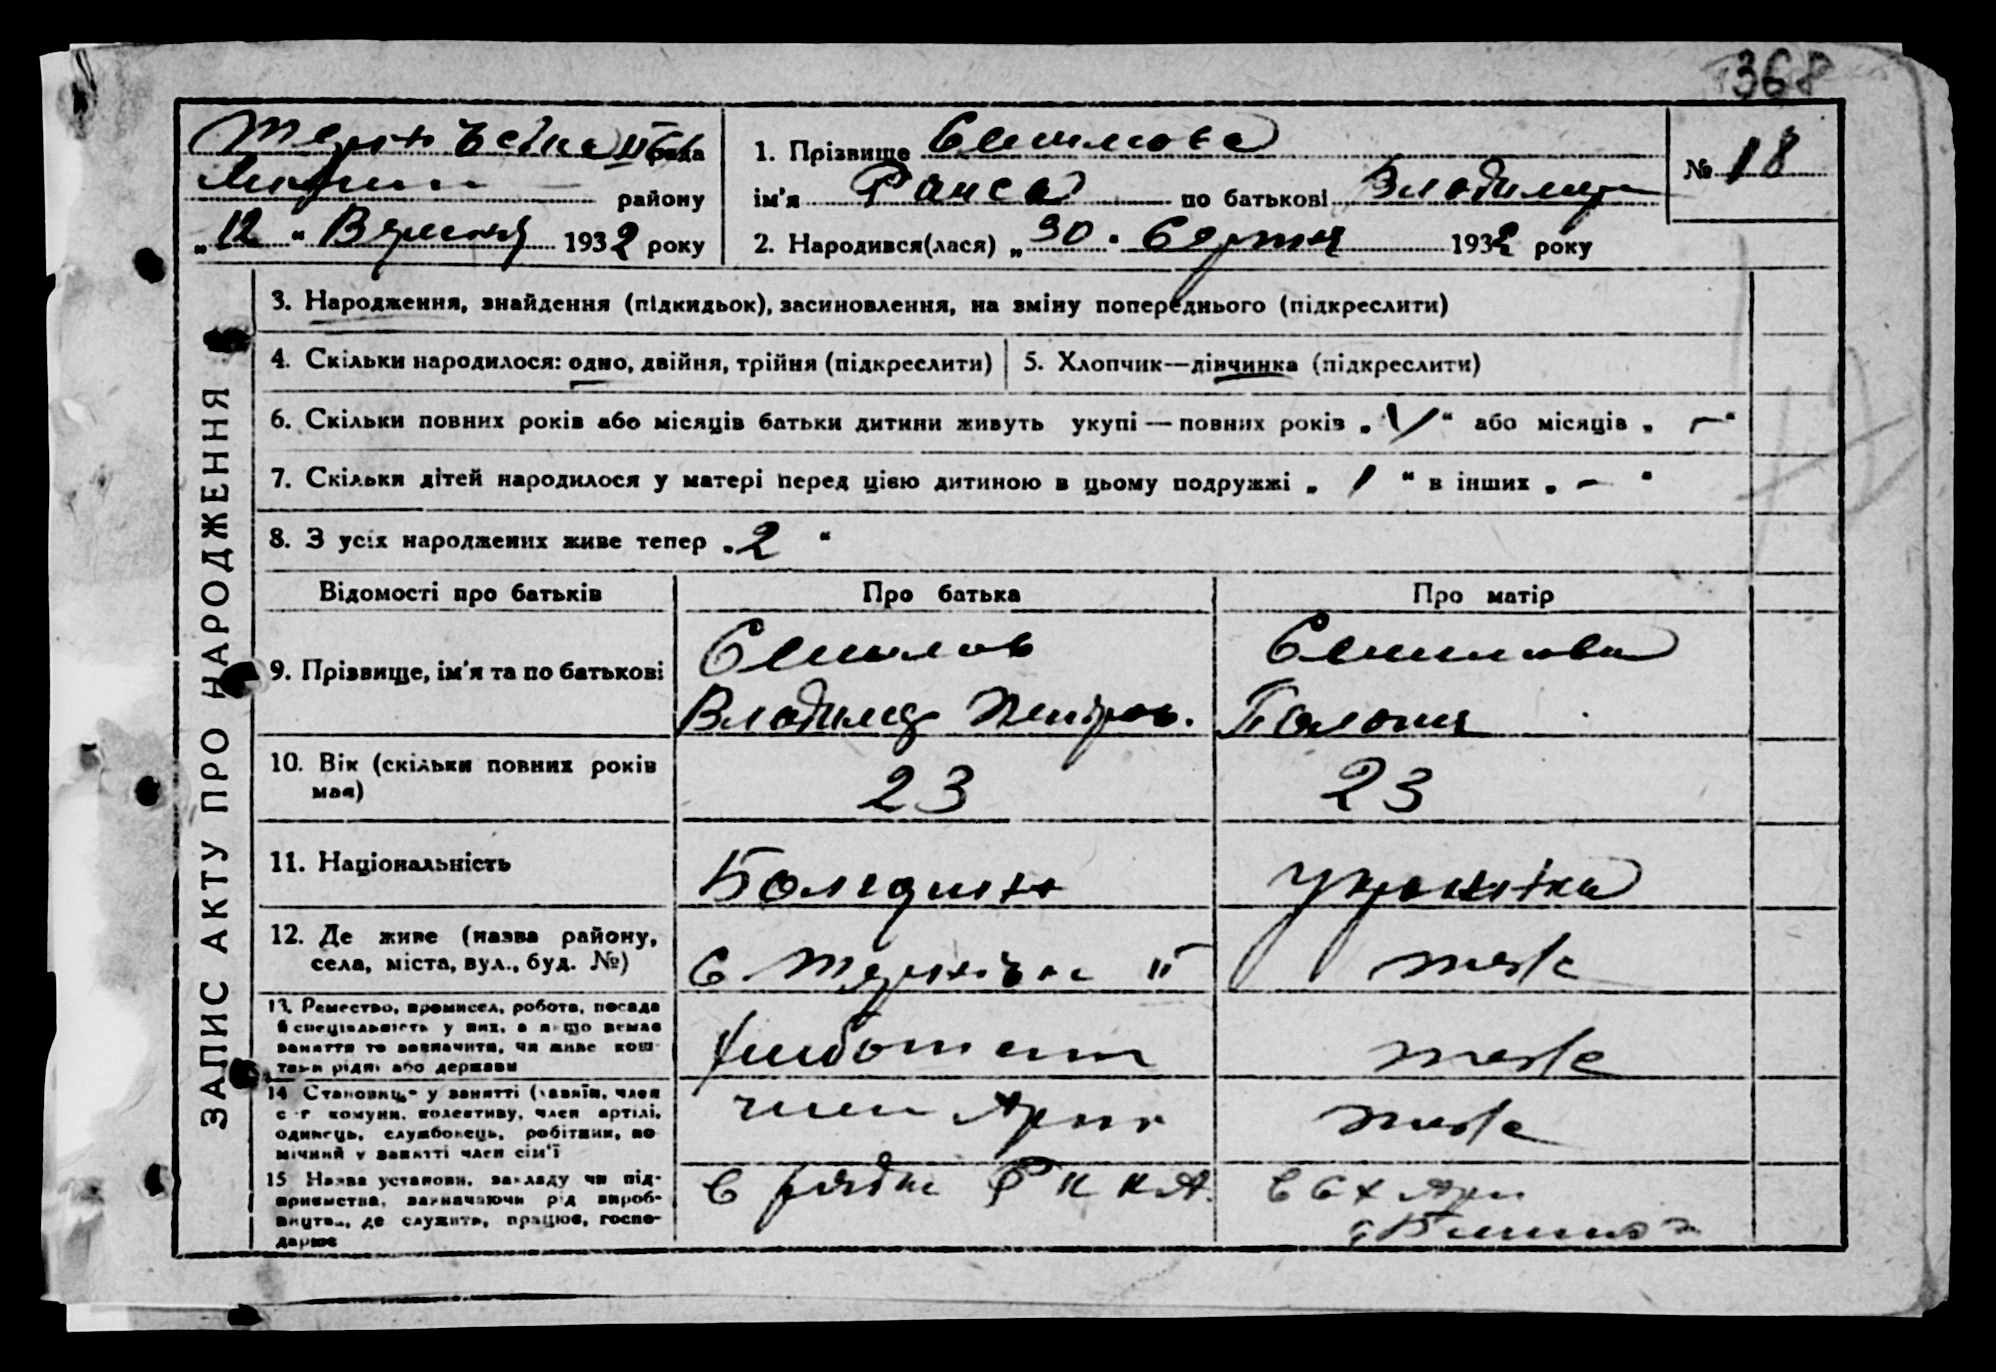 368
рада
району
„12“ Вересня 1932 року
1. Прізвище
ім'я Раиса по батькові Владимир
2. Народився(лася) „30“ Серпня 1932 року
№ 18
ЗАПИС АКТУ ПРО НАРОДЖЕННЯ
3. Народження, знайдення (підкидьок), засиновлення, на зміну попереднього (підкреслити)
4. Скільки народилося: одно, двійня, трійня (підкреслити)
5. Хлопчик—дівчинка (підкреслити)
6. Скільки повних років або місяців батьки дитини живуть укупі — повних років „V“ або місяців „—“
7. Скільки дітей народилося у матері перед цією дитиною в цьому подружжі „1“ в інших „—“
8. З усіх народжених живе тепер „2“
Відомості про батьків
Про батька
Про матір
9. Прізвище, ім'я та по батькові
Владимир
10. Вік (скільки повних років має)
23
23
11. Національність
українка
12. Де живе (назва району, села, міста, вул., буд. №)
с II
теж
13. Ремество, промисел, робота, посада й спеціяльність у них, а якщо немає заняття то зазначити, чи живе коштами рідні або держави
теж
14. Становище у занятті (хазяїн, член с-г комуни, колективу, член артілі, одинець, службовець, робітник, помічний у занятті член сім'ї
член
теж
15. Назва установи, закладу чи підприємства, зазначаючи рід виробництва, де служить, працює, господарює
В рядах РККА